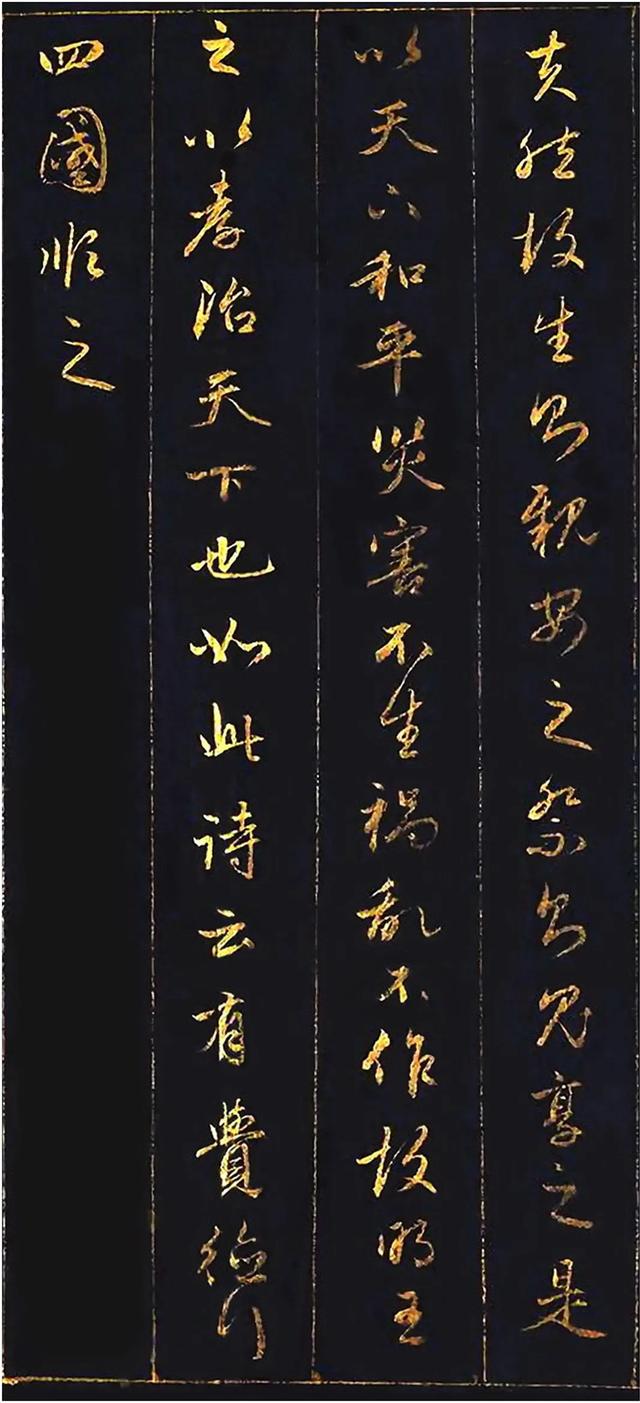 夫然故生則親安之祭則鬼享之是
以天下和平災害不生禍亂不作故明王
之以孝治天下也如此詩云有覺德行
四國順之